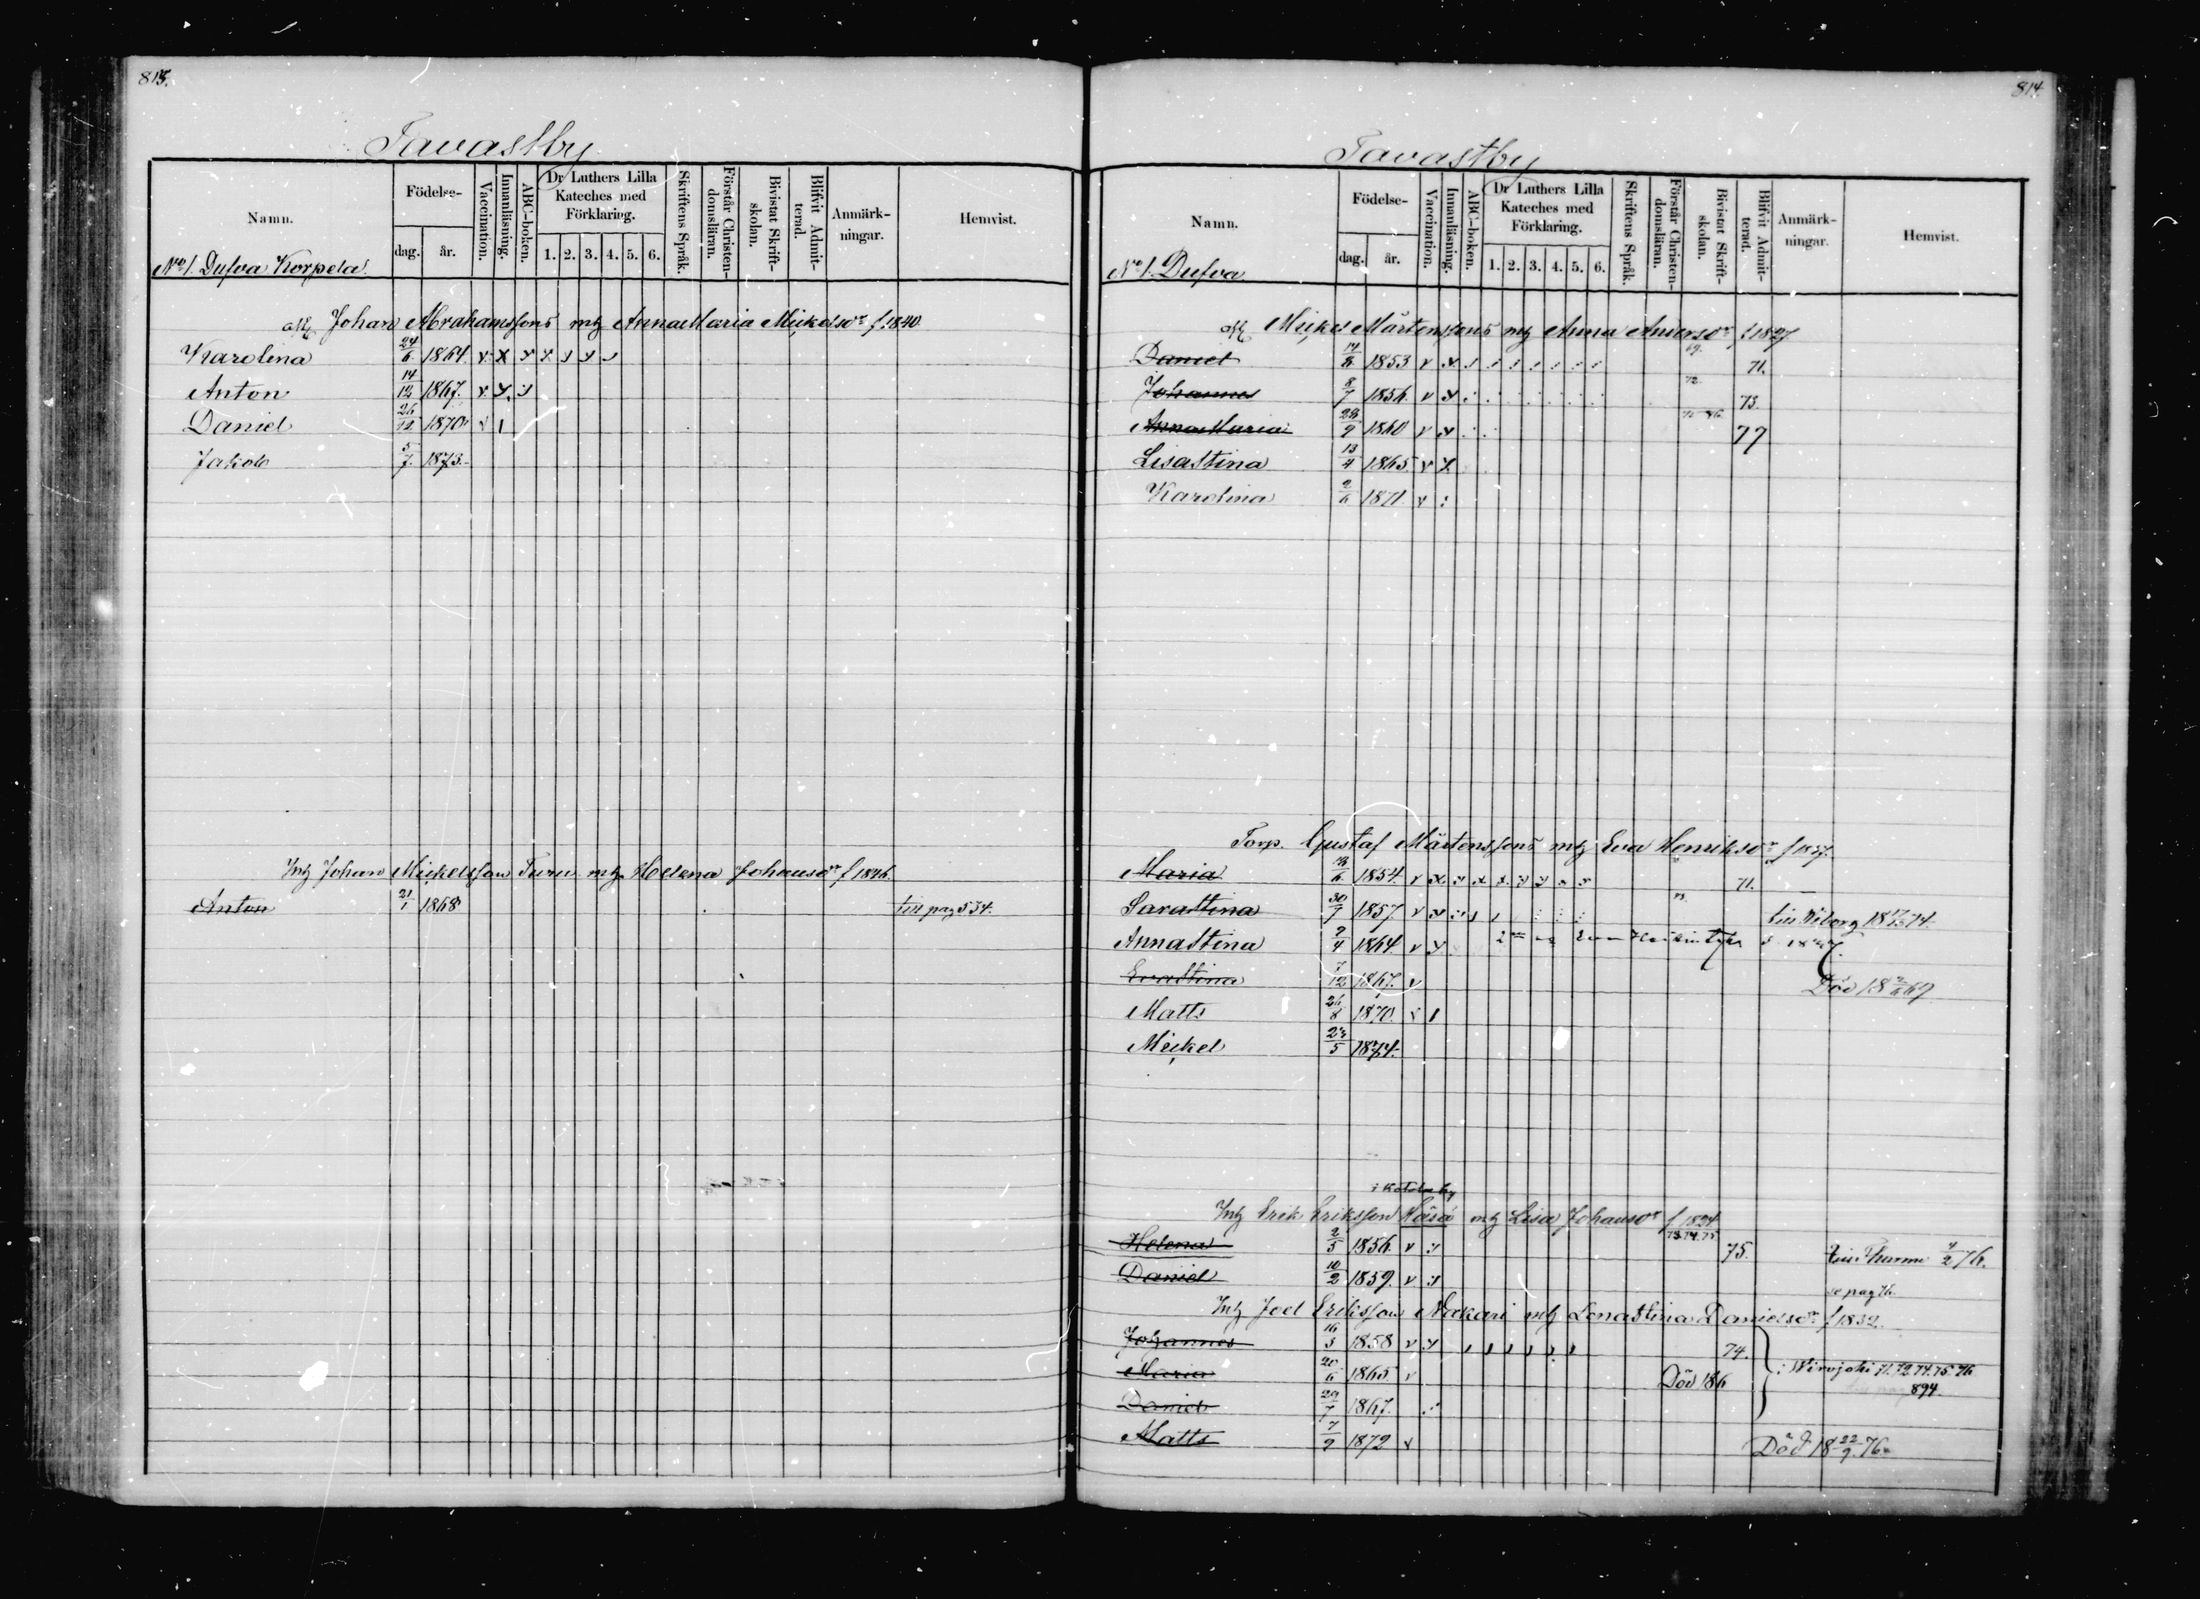 813.
Tavastby
Namn. Födelse- dag. år. Vaccination. Innanläsning. ABC-boken. Dr Luthers Lilla Kateches med Förklaring. 1. 2. 3. 4. 5. 6. Skriftens Språk. Förstår Christendomsläran. Bivistat Skriftskolan. Blifvit Admitterad. Anmärkningar. Hemvist.
No 1. Dufva Korpela
Johan Abrahamssons mh Anna Maria Mickelsdr f. 1840
Karolina 24/6 1864.
Anton 14/12 1867.
Daniel 26/12 1870
Jakob 5/7 1873.
Inh Johan Mickelsson Turu mh Helena Johansdr f 1846.
Anton 21/1 1868 till pag 534.
814
Tavastby
Namn. Födelse- dag. år. Vaccination. Innanläsning. ABC-boken. Dr Luthers Lilla Kateches med Förklaring. 1. 2. 3. 4. 5. 6. Skriftens Språk. Förstår Christendomsläran. Bivistat Skriftskolan. Blifvit Admitterad. Anmärkningar. Hemvist.
No 1. Dufva
Mickel Mårtenssons mh Anna Andersdr f 1827
Daniel 1853 69. 71.
Johannes 8/7 1856. 72. 73.
Anna Maria 28/9 1860 77
Lisa Stina 13/4 1865
Karolina 2/6 1871.
Torp. Gustaf Mårtenssons mh Eva Henriksdr
Maria 1854. 71.
Sara Stina 30/7 1857 Wiborg
Anna Stina 9/4 1864.
Eva Stina 7/12 1867. Död
Matts 26/8 1870.
Mickel 23/5 1874.
Inh Erik Eriksson mh Lisa Johansdr f 1824
Helena 2/5 1856. 73.74.75. 75. 4/2 76.
Daniel 10/2 1859. se pag 76.
Inh Joel Eriksson Nakari mh Lena Stina Danielsdr f 1832.
Johannes 16/3 1858 74.
Maria 20/6 1865. Död 186 71.72.74.75.76
Daniel 29/7 1867. 894.
Matts 7/9 1872 Död 18 22/9 76.